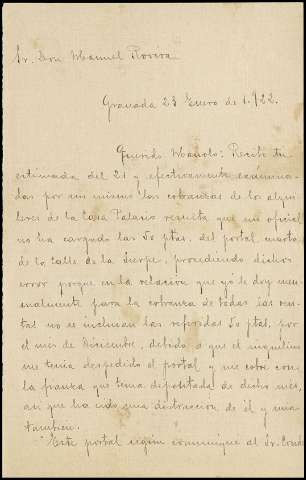 Sr. Don Manuel Rovera
Granada 23 Enero de 1.922.
Querido Manolo: Recibí tu
estimada del 21 y efectivamente examina-
das por mi mismo las cobranzas de los alqui-
leres de la Casa Palacio resulta que un oficial
no ha cargado las 50 ptas. del portal cuarto
de la Calle de la Sierpe, procediendo dicho
error porque en la relacion que yo le doy men-
sualmente para la cobranza de todas las ren-
tas no se incluian las referidas 50 ptas, por
el mes de Diciembre, debido a que el inquilino
me tenia despedido el portal y me cobré con
la fianza que tenia depositada de dicho mes,
asi que ha sido una distraccion de él y mia
tambien.
Este portal segun comuniqué al Sr. Conde